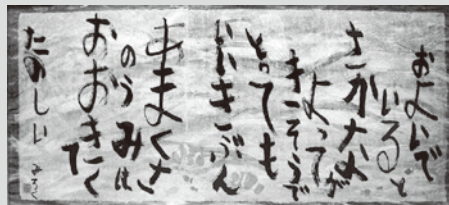 およいで
いると
さかなが
よって
きそうで
とっても
いいきぶん
あまくさ
のうみは
おおきくて
たのしい